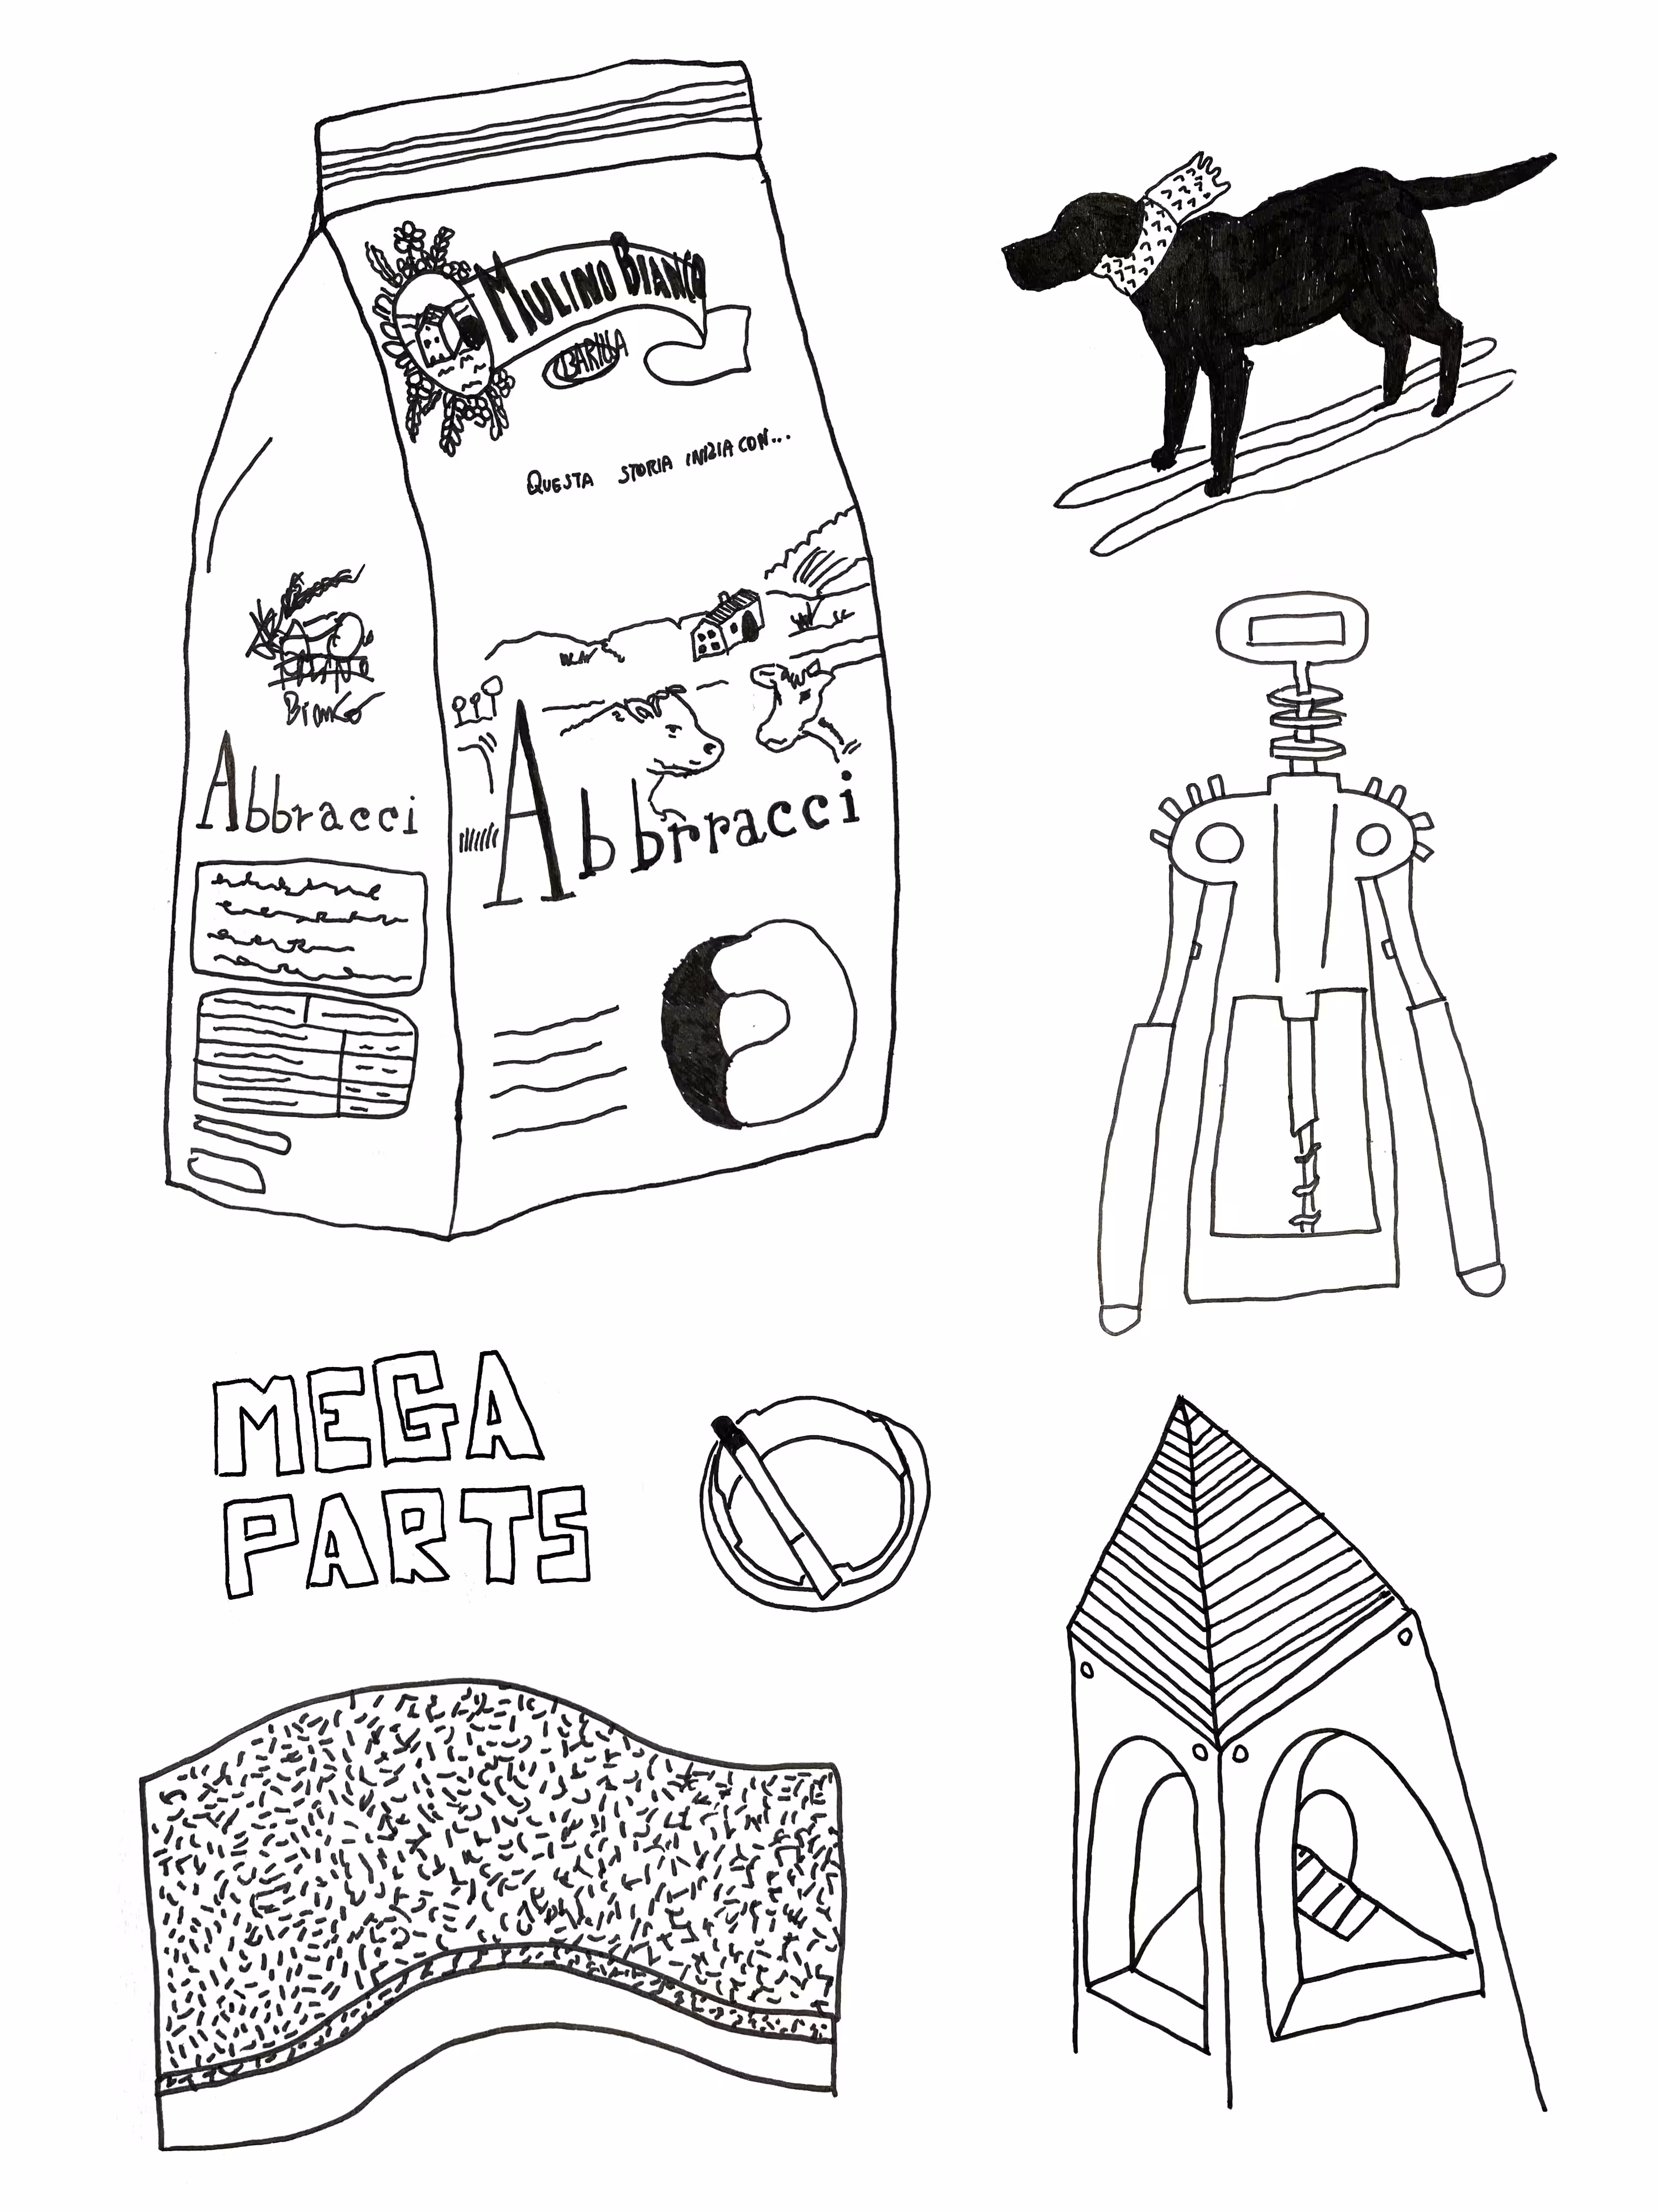 MULINO BIANCO
BARILLA
QUESTA STORIA INIZIA CON...
Bianco
Abbracci
Abbrracci
MEGA
PARTS